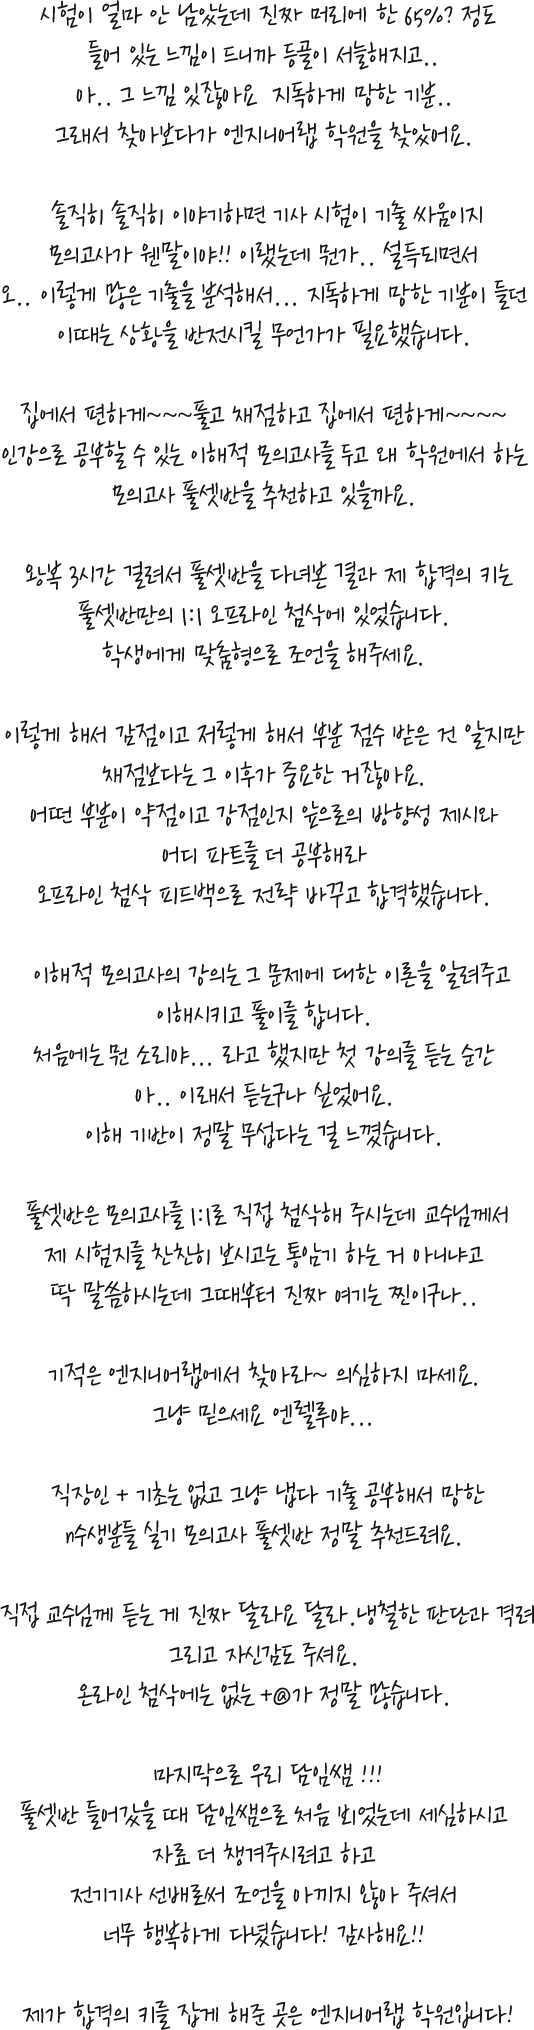 시험이 얼마 안 남았는데 진짜 머리에 한 65%? 정도
들어 있는 느낌이 드니까 등골이 서늘해지고..
아.. 그 느낌 있잖아요 지독하게 망한 기분..
그래서 찾아보다가 엔지니어랩 학원을 찾았어요.
솔직히 솔직히 이야기하면 기사 시험이 기출 싸움이지
모의고사가 웬말이야!! 이랬는데 뭔가.. 설득되면서
오.. 이렇게 많은 기출을 분석해서... 지독하게 망한 기분이 들던
이때는 상황을 반전시킬 무언가가 필요했습니다.
집에서 편하게~~~풀고 채점하고 집에서 편하게~~~~
인강으로 공부할 수 있는 이해적 모의고사를 두고 왜 학원에서 하는
모의고사 풀셋반을 추천하고 있을까요.
왕복 3시간 걸려서 풀셋반을 다녀본 결과 제 합격의 키는
풀셋반만의 1:1 오프라인 첨삭에 있었습니다.
학생에게 맞춤형으로 조언을 해주세요.
이렇게 해서 감점이고 저렇게 해서 부분 점수 받은 건 알지만
채점보다는 그 이후가 중요한 거잖아요.
어떤 부분이 약점이고 강점인지 앞으로의 방향성 제시와
어디 파트를 더 공부해라
오프라인 첨삭 피드백으로 전략 바꾸고 합격했습니다.
이해적 모의고사의 강의는 그 문제에 대한 이론을 알려주고
이해시키고 풀이를 합니다.
처음에는 뭔 소리야... 라고 했지만 첫 강의를 듣는 순간
아.. 이래서 듣는구나 싶었어요.
이해 기반이 정말 무섭다는 걸 느꼈습니다.
풀셋반은 모의고사를 1:1로 직접 첨삭해 주시는데 교수님께서
제 시험지를 찬찬히 보시고는 통암기 하는 거 아니냐고
딱 말씀하시는데 그때부터 진짜 여기는 찐이구나..
기적은 엔지니어랩에서 찾아라~ 의심하지 마세요.
그냥 믿으세요 엔렐루야...
직장인 + 기초는 없고 그냥 냅다 기출 공부해서 망한
n수생분들 실기 모의고사 풀셋반 정말 추천드려요.
직접 교수님께 듣는 게 진짜 달라요 달라.냉철한 판단과 격려
그리고 자신감도 주셔요.
온라인 첨삭에는 없는 +@가 정말 많습니다.
마지막으로 우리 담임쌤 !!!
풀셋반 들어갔을 때 담임쌤으로 처음 뵈었는데 세심하시고
자료 더 챙겨주시려고 하고
전기기사 선배로써 조언을 아끼지 않아 주셔서
너무 행복하게 다녔습니다! 감사해요!!
제가 합격의 키를 잡게 해준 곳은 엔지니어랩 학원입니다!